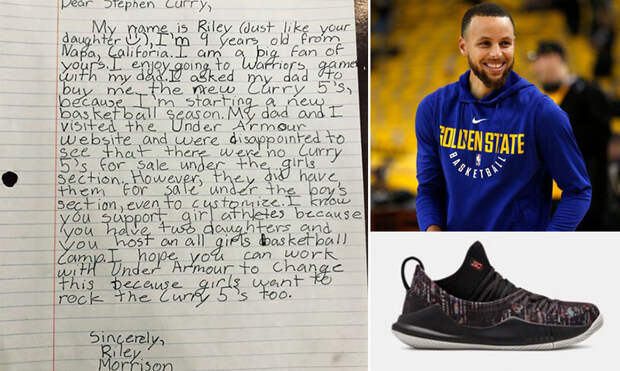 Dear Stephen Curry,
My name is Riley (Just like your
daughter!), I'm 9 years old from
Napa, California. I am a big fan of
yours. I enjoy going to Warriors games
with my dad. I asked my dad to
buy me the new Curry 5's,
because I'm starting a new
basketball season. My dad and I
visited the Under Armour
website and were disappointed to
see that there were no Curry
5's for sale under the girls
section. However, they did have
them for sale under the boy's
section, even to customize. I know
you support girl athletes because
you have two daughters and
you host an all girls basketball
camp. I hope you can work
with Under Armour to change
this because girls want to
rock the Curry 5's too.
Sincerely,
Riley
Morrison
GOLDEN STATE
BASKETBALL